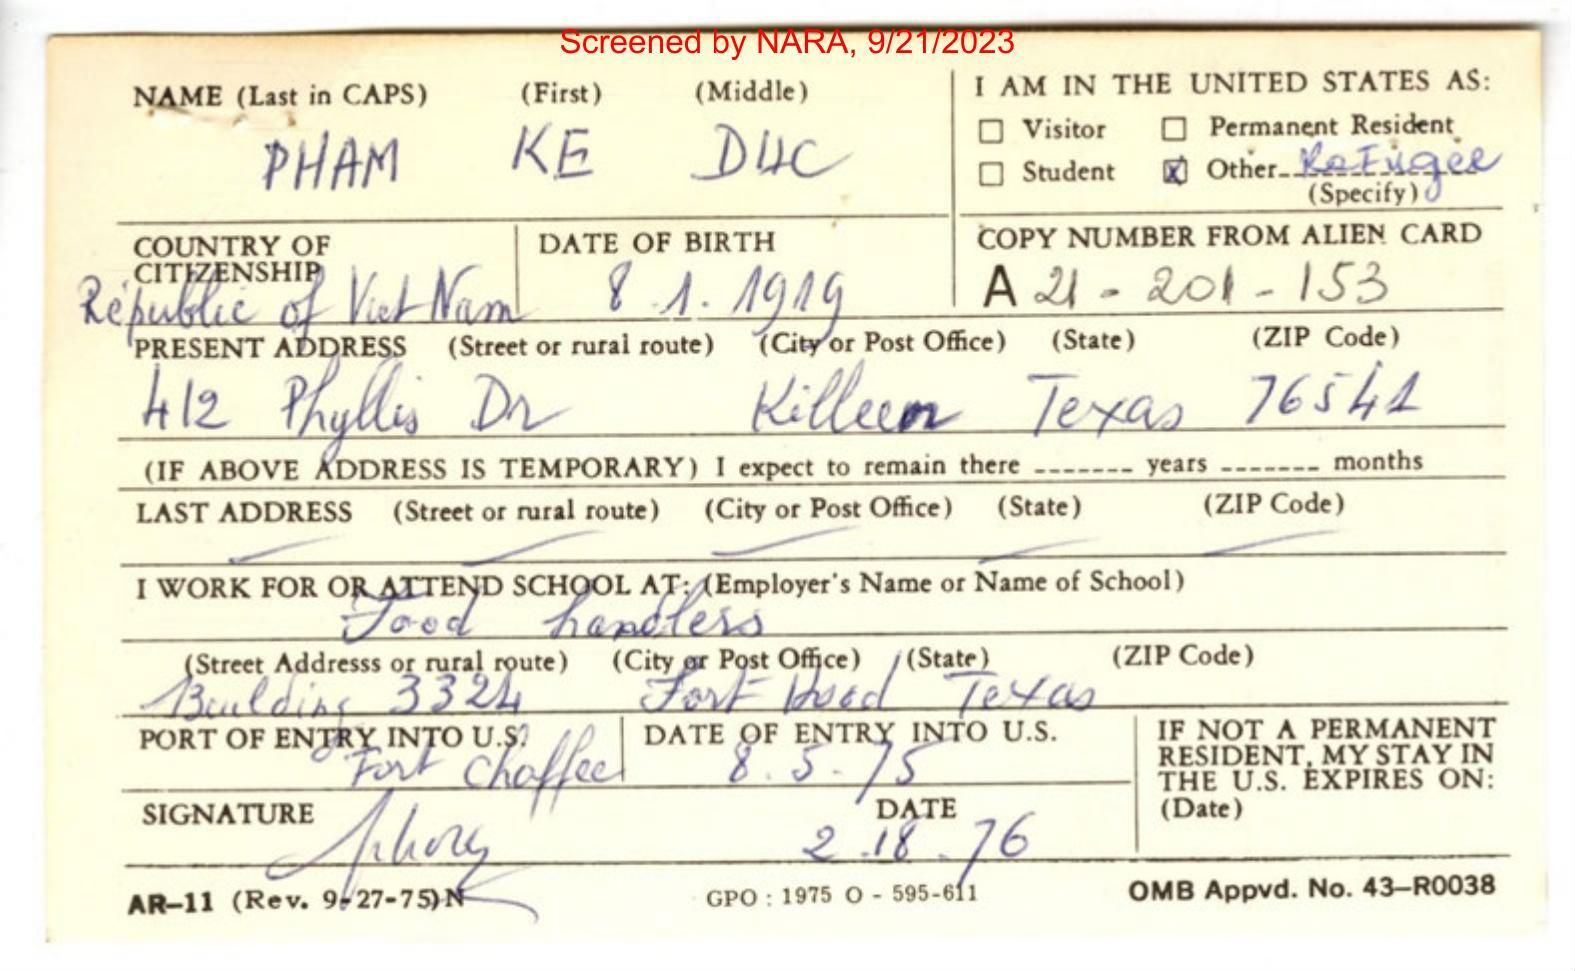 Screened by NARA, 9/21/2023
NAME (Last in CAPS) (First) (Middle)
PHAM KE DUC
I AM IN THE UNITED STATES AS:
☐ Visitor ☐ Permanent Resident
☐ Student ☒ Other Refugee
(Specify)
COUNTRY OF
CITIZENSHIP
Republic of Viet Nam
DATE OF BIRTH
8.1.1919
COPY NUMBER FROM ALIEN CARD
A 21-201-153
PRESENT ADDRESS (Street or rural route) (City or Post Office) (State) (ZIP Code)
412 Phyllis Dr Killeen Texas 76541
(IF ABOVE ADDRESS IS TEMPORARY) I expect to remain there ------- years ------- months
LAST ADDRESS (Street or rural route) (City or Post Office) (State) (ZIP Code)
I WORK FOR OR ATTEND SCHOOL AT: (Employer's Name or Name of School)
Food handlers
(Street Addresss or rural route) (City or Post Office) (State) (ZIP Code)
Building 3324 Fort Hood Texas
PORT OF ENTRY INTO U.S.
Fort Chaffee
DATE OF ENTRY INTO U.S.
8.5.75
IF NOT A PERMANENT
RESIDENT, MY STAY IN
THE U.S. EXPIRES ON:
(Date)
SIGNATURE
DATE
2.18.76
AR-11 (Rev. 9-27-75)N GPO : 1975 O - 595-611 OMB Appvd. No. 43-R0038